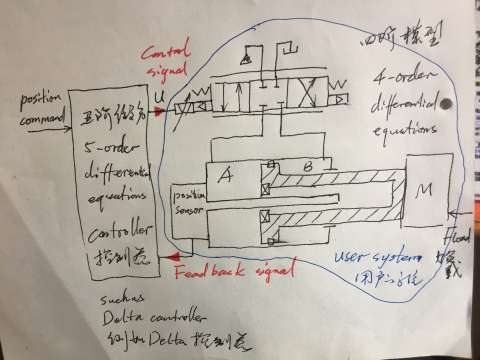 Control
signal
四阶模型
4-order
differential
equations
position
command
U
五阶
5-order
differential
equations
controller
控制器
A
B
position
sensor
M
Fload
user system
Feedback signal
such as
Delta controller
例如Delta控制器